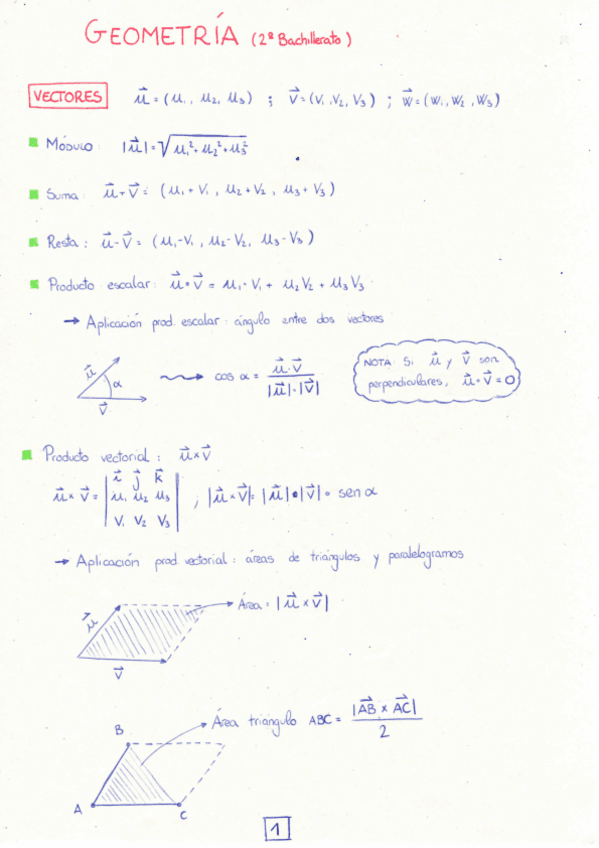 GEOMETRÍA (2º Bachillerato)
VECTORES u⃗ = (u₁, u₂, u₃) ; v⃗ = (v₁, v₂, v₃) ; w⃗ = (w₁, w₂, w₃)
Módulo: |u⃗| = √(u₁² + u₂² + u₃²)
Suma: u⃗ + v⃗ = (u₁ + v₁, u₂ + v₂, u₃ + v₃)
Resta: u⃗ - v⃗ = (u₁ - v₁, u₂ - v₂, u₃ - v₃)
Producto escalar: u⃗ • v⃗ = u₁ · v₁ + u₂ v₂ + u₃ v₃
→ Aplicación prod. escalar: ángulo entre dos vectores
u⃗ α v⃗
cos α = u⃗ · v⃗ / |u⃗| · |v⃗|
NOTA: Si u⃗ y v⃗ son
perpendiculares, u⃗ • v⃗ = 0
Producto vectorial: u⃗ x v⃗
u⃗ x v⃗ = | i⃗ j⃗ k⃗ |
| u₁ u₂ u₃ | ; |u⃗ x v⃗| = |u⃗| • |v⃗| • sen α
| v₁ v₂ v₃ |
→ Aplicación prod. vectorial: áreas de triángulos y paralelogramos
Área = |u⃗ x v⃗|
u⃗
v⃗
Área triángulo ABC = |AB⃗ x AC⃗| / 2
B
A
C
1